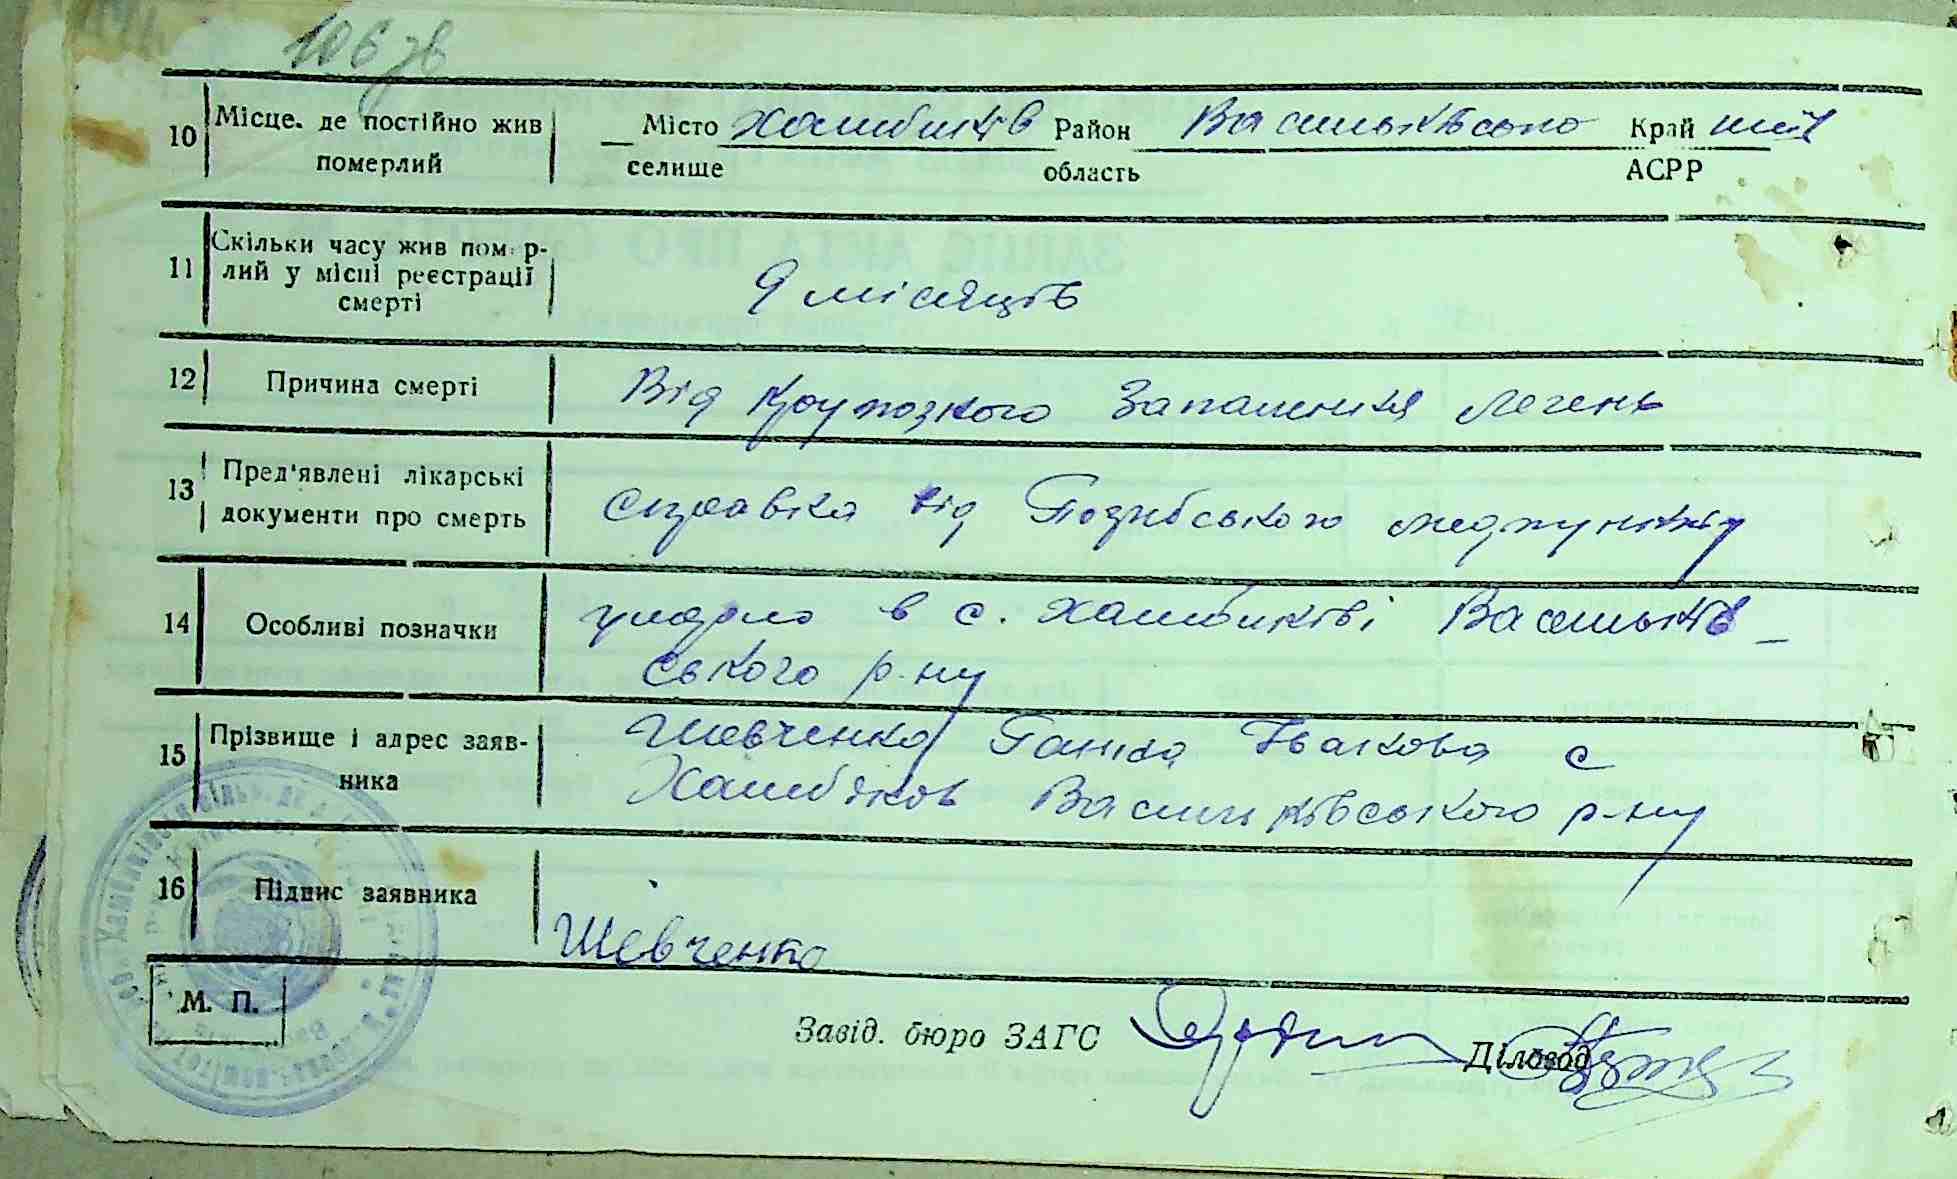 106 зв
10 Місце. де постійно жив Місто Хамбиків Район Васильківсько Край
померлий селище область АСРР
11 Скільки часу жив помер-
лий у місці реєстрації 9 місяців
смерті
12 Причина смерті Від Крупозкого Запалення легень
13 Пред'явлені лікарські справка від медпункту
документи про смерть
14 Особливі позначки умерло в с. Хамбиківі Васильків-
ського р-ну
15 Прізвище і адрес заяв- Шевченко Ганна Івакова с
ника Хамбиков Васильківського р-ну
16 Підпис заявника
Шевченко
М. П.
Завід. бюро ЗАГС Діловод